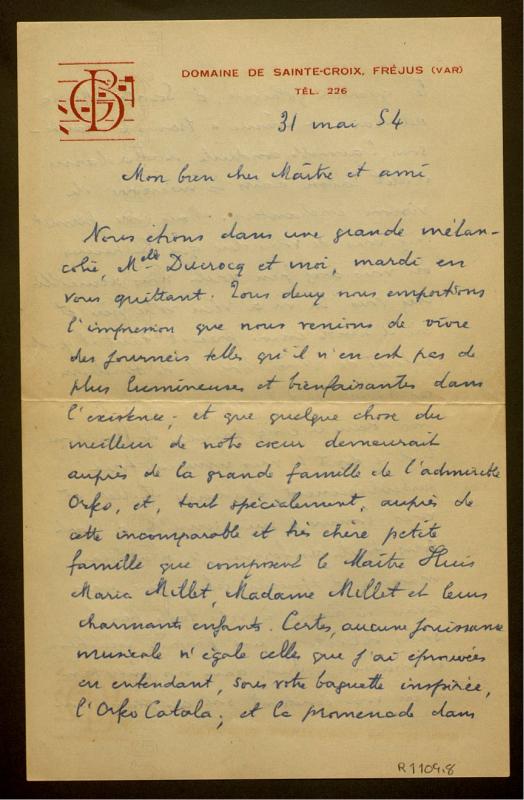 DOMAINE DE SAINTE-CROIX, FRÉJUS (VAR)
TÉL. 226
31 mai 54
Mon bien cher Maître et ami
Nous étions dans une grande mélan-
colie, Melle Ducrocq et moi, mardi en
vous quittant. Tous deux nous emportions
l'impression que nous venions de vivre
des journées telles qu'il n'en est pas de
plus lumineuses et bienfaisantes dans
l'existence; et que quelque chose du
meilleur de notre cœur demeurait
auprès de la grande famille de l'admirable
Orfeo, et, tout spécialement, auprès de
cette incomparable et très chère petite
famille que composent le Maître Lluis
Maria Millet, Madame Millet et leurs
charmants enfants. Certes, aucune jouissance
musicale n'égale celles que j'ai éprouvées
en entendant, sous votre baguette inspirée,
l'Orfeo Catala; et la promenade dans
R1109.8